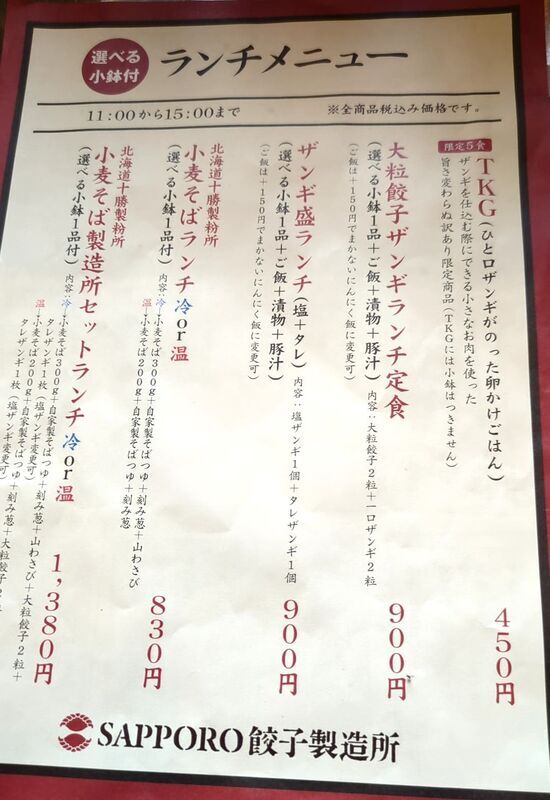 選べる
小鉢付
ランチメニュー
11:00から15:00まで
※全商品税込み価格です。
限定5食
TKG(ひと口ザンギがのった卵かけごはん)
ザンギを仕込む際にできる小さなお肉を使った
旨さ変わらぬ訳あり限定商品(TKGには小鉢はつきません)
450円
大粒餃子ザンギランチ定食
(選べる小鉢1品+ご飯+漬物+豚汁)
内容:大粒餃子2粒+一口ザンギ2粒
(ご飯は+150円でまかないにんにく飯に変更可)
900円
ザンギ盛ランチ(塩+タレ)
(選べる小鉢1品+ご飯+漬物+豚汁)
内容:塩ザンギ1個+タレザンギ1個
(ご飯は+150円でまかないにんにく飯に変更可)
900円
北海道十勝製粉所
小麦そばランチ 冷or温
(選べる小鉢1品付)
内容:冷→小麦そば300g+自家製そばつゆ+刻み葱+山わさび
温→小麦そば200g+自家製そばつゆ+刻み葱
830円
北海道十勝製粉所
小麦そば製造所セットランチ 冷or温
(選べる小鉢1品付)
内容:冷→小麦そば300g+自家製そばつゆ+刻み葱+山わさび+大粒餃子2粒+
タレザンギ1枚(塩ザンギ変更可)
温→小麦そば200g+自家製そばつゆ+刻み葱+大粒餃子2
タレザンギ1枚(塩ザンギ変更可)
1,380円
SAPPORO餃子製造所